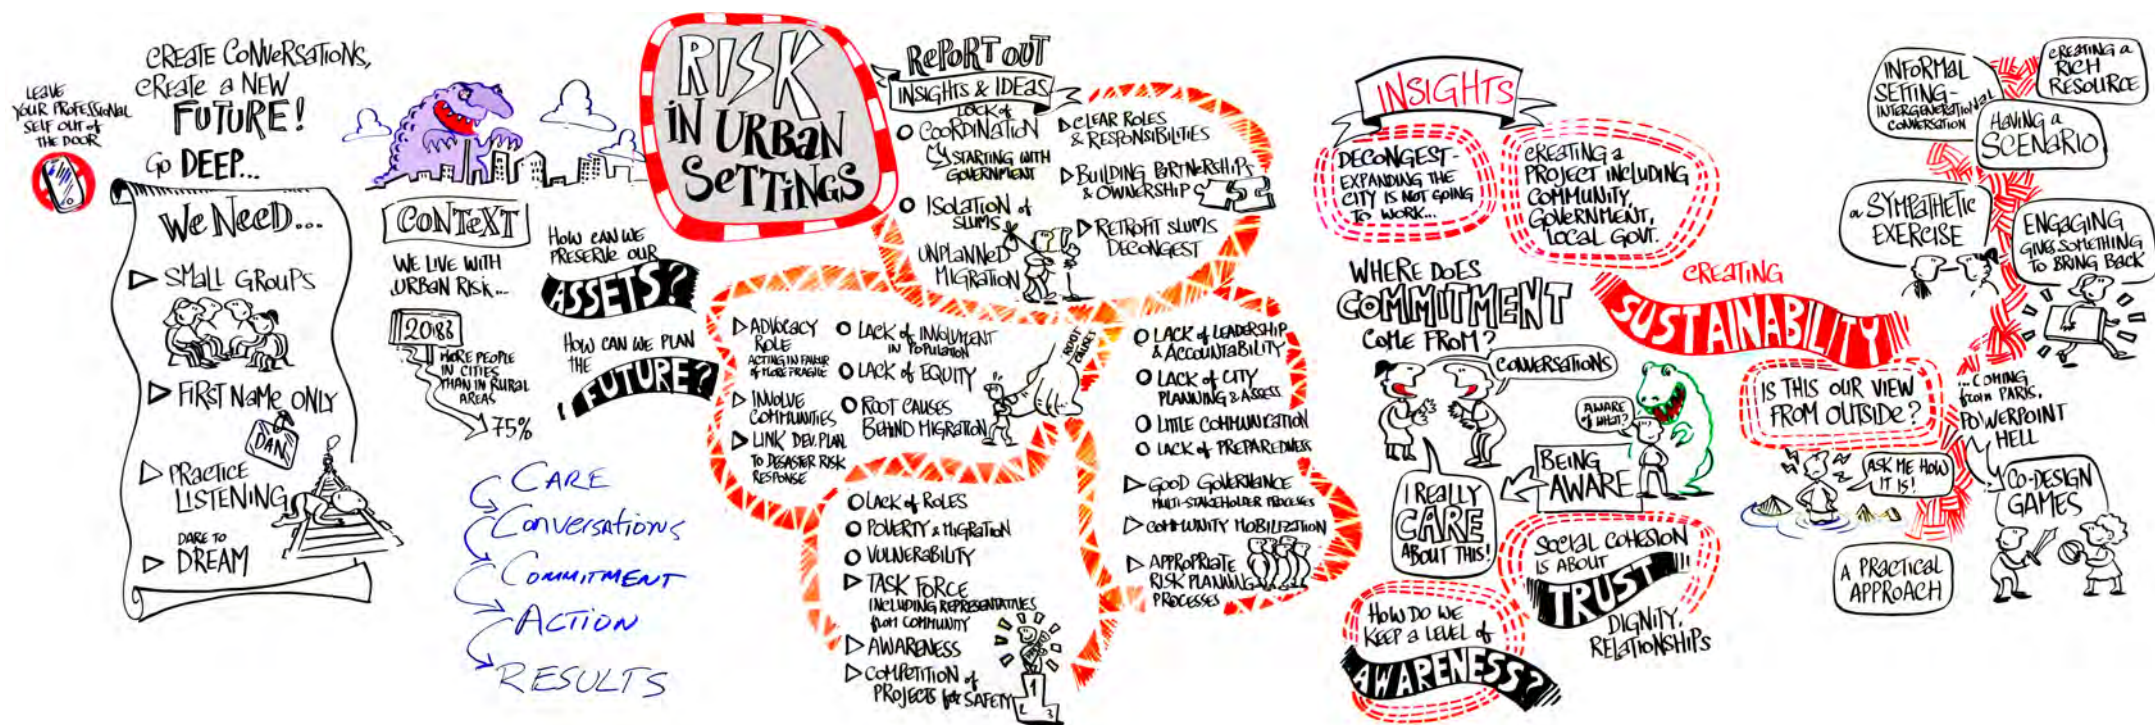 LEAVE
YOUR PROFESSIONAL
SELF OUT of
THE DOOR
CREATE CONVERSATIONS,
CREATE a NEW
FUTURE!
Go DEEP...
We NeeD...
SMALL GROUPS
FIRST NAME ONLY
DAN
PRACTICE
LISTENING
DARE TO
DREAM
CONTEXT
WE LIVE WITH
URBAN RISK...
MORE PEOPLE
IN CITIES
THAN IN RURAL
AREAS
75%
HOW CAN WE
PRESERVE OUR
ASSETS?
HOW CAN WE PLAN
THE
FUTURE?
CARE
CONVERSATIONS
COMMITMENT
ACTION
RESULTS
RISK
IN URBAN
SETTINGS
RePORT OUT
INSIGHTS & IDEAS
LACK of
COORDINATION
STARTING WITH
GOVERNMENT
ISOLATION of
SLUMS
UNPLANNED
MIGRATION
CLEAR ROLES
& RESPONSIBILITIES
BUILDING PARTNERSHIPS
& OWNERSHIP
RETROFIT SLUMS
DECONGEST
ADVOCACY
ROLE
ACTING IN FAVOUR
of MORE FRAGILE
INVOLVE
COMMUNITIES
LINK DEV. PLAN
TO DISASTER RISK
RESPONSE
LACK of INVOLMENT
IN POPULATION
LACK of EQUITY
ROOT CAUSES
BEHIND MIGRATION
ROOT
CAUSES
LACK of ROLES
POVERTY & MIGRATION
VULNERABILITY
TASK FORCE
INCLUDING REPRESENTATIVES
from COMMUNITY
AWARENESS
COMPETITION of
PROJECTS for SAFETY
1
2 3
LACK of LEADERSHIP
& ACCOUNTABILITY
LACK of CITY
PLANNING & ASSESS
LITTLE COMMUNICATION
LACK of PREPAREDNESS
GOOD GOVERNANCE
MULTI-STAKEHOLDER PROCESSES
COMMUNITY MOBILIZATION
APPROPRIATE
RISK PLANNING
PROCESSES
INSIGHTS
DECONGEST-
EXPANDING THE
CITY IS NOT GOING
TO WORK...
CREATING a
PROJECT INCLUDING
COMMUNITY,
GOVERNMENT,
LOCAL GOVT.
WHERE DOES
COMMITMENT
COME FROM?
CONVERSATIONS
I REALLY
CARE
ABOUT THIS!
AWARE
of WHAT?
BEING
AWARE
SOCIAL COHESION
IS ABOUT
TRUST
DIGNITY,
RELATIONSHIPS
HOW DO WE
KEEP a LEVEL of
AWARENESS?
CREATING
SUSTAINABILITY
IS THIS OUR VIEW
FROM OUTSIDE?
ASK ME HOW
IT IS!
INFORMAL
SETTING-
INTERGENERATIONAL
CONVERSATION
CREATING a
RICH
RESOURCE
HAVING a
SCENARIO
a SYMPATHETIC
EXERCISE
ENGAGING
GIVES SOMETHING
TO BRING BACK
...COMING
from PARIS,
POWERPOINT
HELL
CO-DESIGN
GAMES
A PRACTICAL
APPROACH